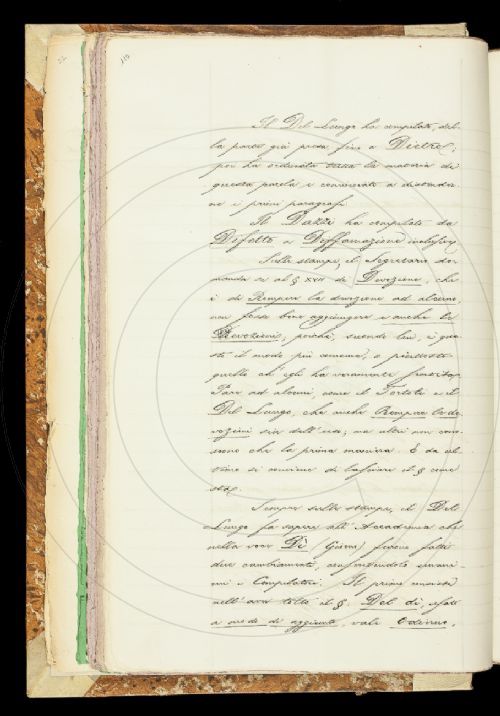 110
Il Del Lungo ha compilato, dal-
la parca già presa fino a Dietro;
poi ha ordinata tutta la materia di
questa parola e cominciato a distende-
re i primi paragrafi
Il Dazzi ha compilato da
Difetto a Diffamazione inclusive
Sulle stampe, il Segretario do-
manda se al § XXII di Devozione, che
è di Rompere la devozione ad alcuno,
non fosse bene aggiungere e anche le
Devozioni, poichè, secondo lui, è que-
sto il modo più comune, o piuttosto
quello ch'egli ha veramente sentito.
Pare ad alcuni, come il Tortoli e il
Del Lungo, che anche Rompere la de-
vozione sia dell'uso; ma altri non cono-
scono che la prima maniera. E da ul-
timo si conviene di lasciare il § come
sta.
Sempre sulle stampe, il Del
Lungo fa sapere all'Accademia che
nella voce Dì (Giorno) furono fatti
due cambiamenti,
e Compilatori. Il primo consiste
nell'aver tolto il § Del dì, usato
a modo di aggiunto, vale Odierno,